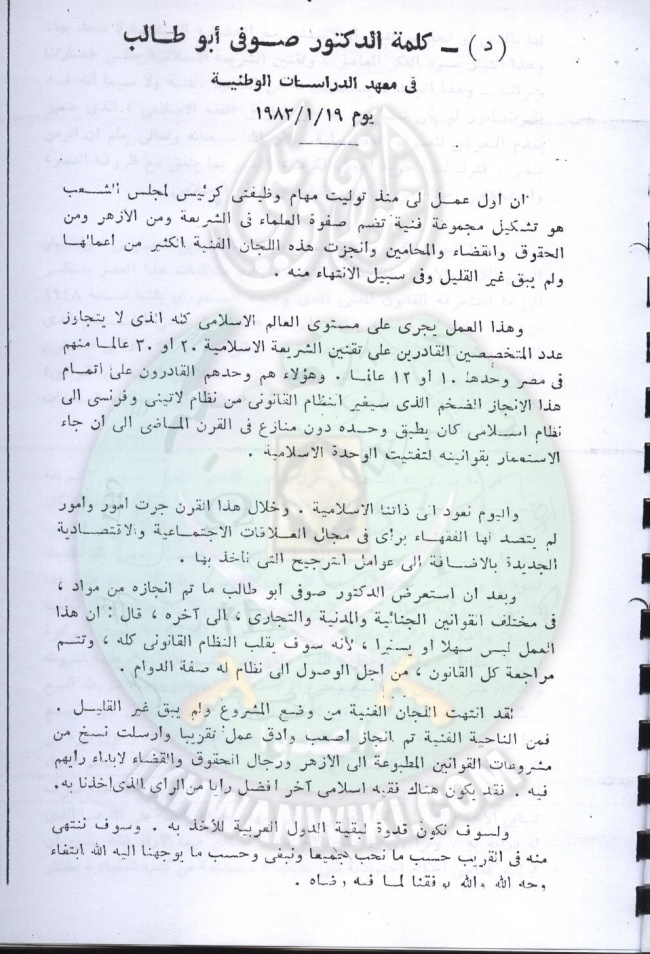 (د) ـ كلمة الدكتور صوفى أبو طالب
فى معهد الدراسات الوطنية
يوم ١٩٨٣/١/١٩
ان أول عمل لى منذ توليت مهام وظيفتى كرئيس لمجلس الشعب
هو تشكيل مجموعة فنية تضم صفوة العلماء فى الشريعة ومن الأزهر ومن
الحقوق والقضاء والمحامين وانجزت هذه اللجان الفنية الكثير من أعمالها
ولم يبق غير القليل وفى سبيل الانتهاء منه .
وهذا العمل يجرى على مستوى العالم الاسلامى كله الذى لا يتجاوز
عدد المتخصصين القادرين على تقنين الشريعة الاسلامية ٢٠ أو ٣٠ عالما منهم
فى مصر وحدها ١٠ أو ١٢ عالما . وهؤلاء هم وحدهم القادرون على اتمام
هذا الانجاز الضخم الذى سيغير النظام القانونى من نظام لاتينى وفرنسى الى
نظام اسلامى كان يطبق وحده دون منازع فى القرن الماضى الى أن جاء
الاستعمار بقوانينه لتفتيت الوحدة الاسلامية .
واليوم نعود الى ذاتنا الاسلامية . وخلال هذا القرن جرت أمور وأمور
لم يتصد لها الفقهاء برأى فى مجال العلاقات الاجتماعية والاقتصادية
الجديدة بالاضافة الى عوامل الترجيح التى نأخذ بها .
وبعد ان استعرض الدكتور صوفى أبو طالب ما تم انجازه من مواد ،
فى مختلف القوانين الجنائية والمدنية والتجارى ، الى آخره ، قال : ان هذا
العمل ليس سهلا أو يسيرا ، لأنه سوف يقلب النظام القانونى كله ، وتتم
مراجعة كل القانون ، من أجل الوصول الى نظام له صفة الدوام .
لقد انتهت اللجان الفنية من وضع المشروع ولم يبق غير القليل .
فمن الناحية الفنية تم انجاز أصعب وأدق عمل تقريبا وأرسلت نسخ من
مشروعات القوانين المطبوعة الى الأزهر ورجال الحقوق والقضاء لابداء رأيهم
فيه . فقد يكون هناك فقيه اسلامى آخر أفضل رأيا من الرأى الذى أخذنا به.
ولسوف نكون قدوة لبقية الدول العربية للأخذ به . وسوف ننتهى
منه فى القريب حسب ما نحب جميعا ونبغى وحسب ما يوجهنا اليه الله ابتغاء
وجه الله والله يوفقنا لما فيه رضاه .